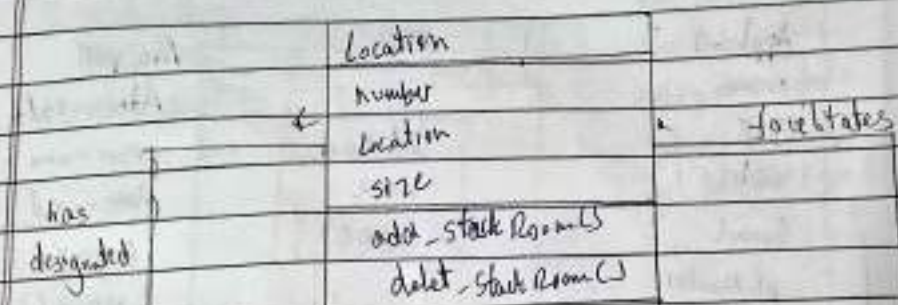 Location
number
location
size
add_StackRoom()
delet_StackRoom()
has
designated